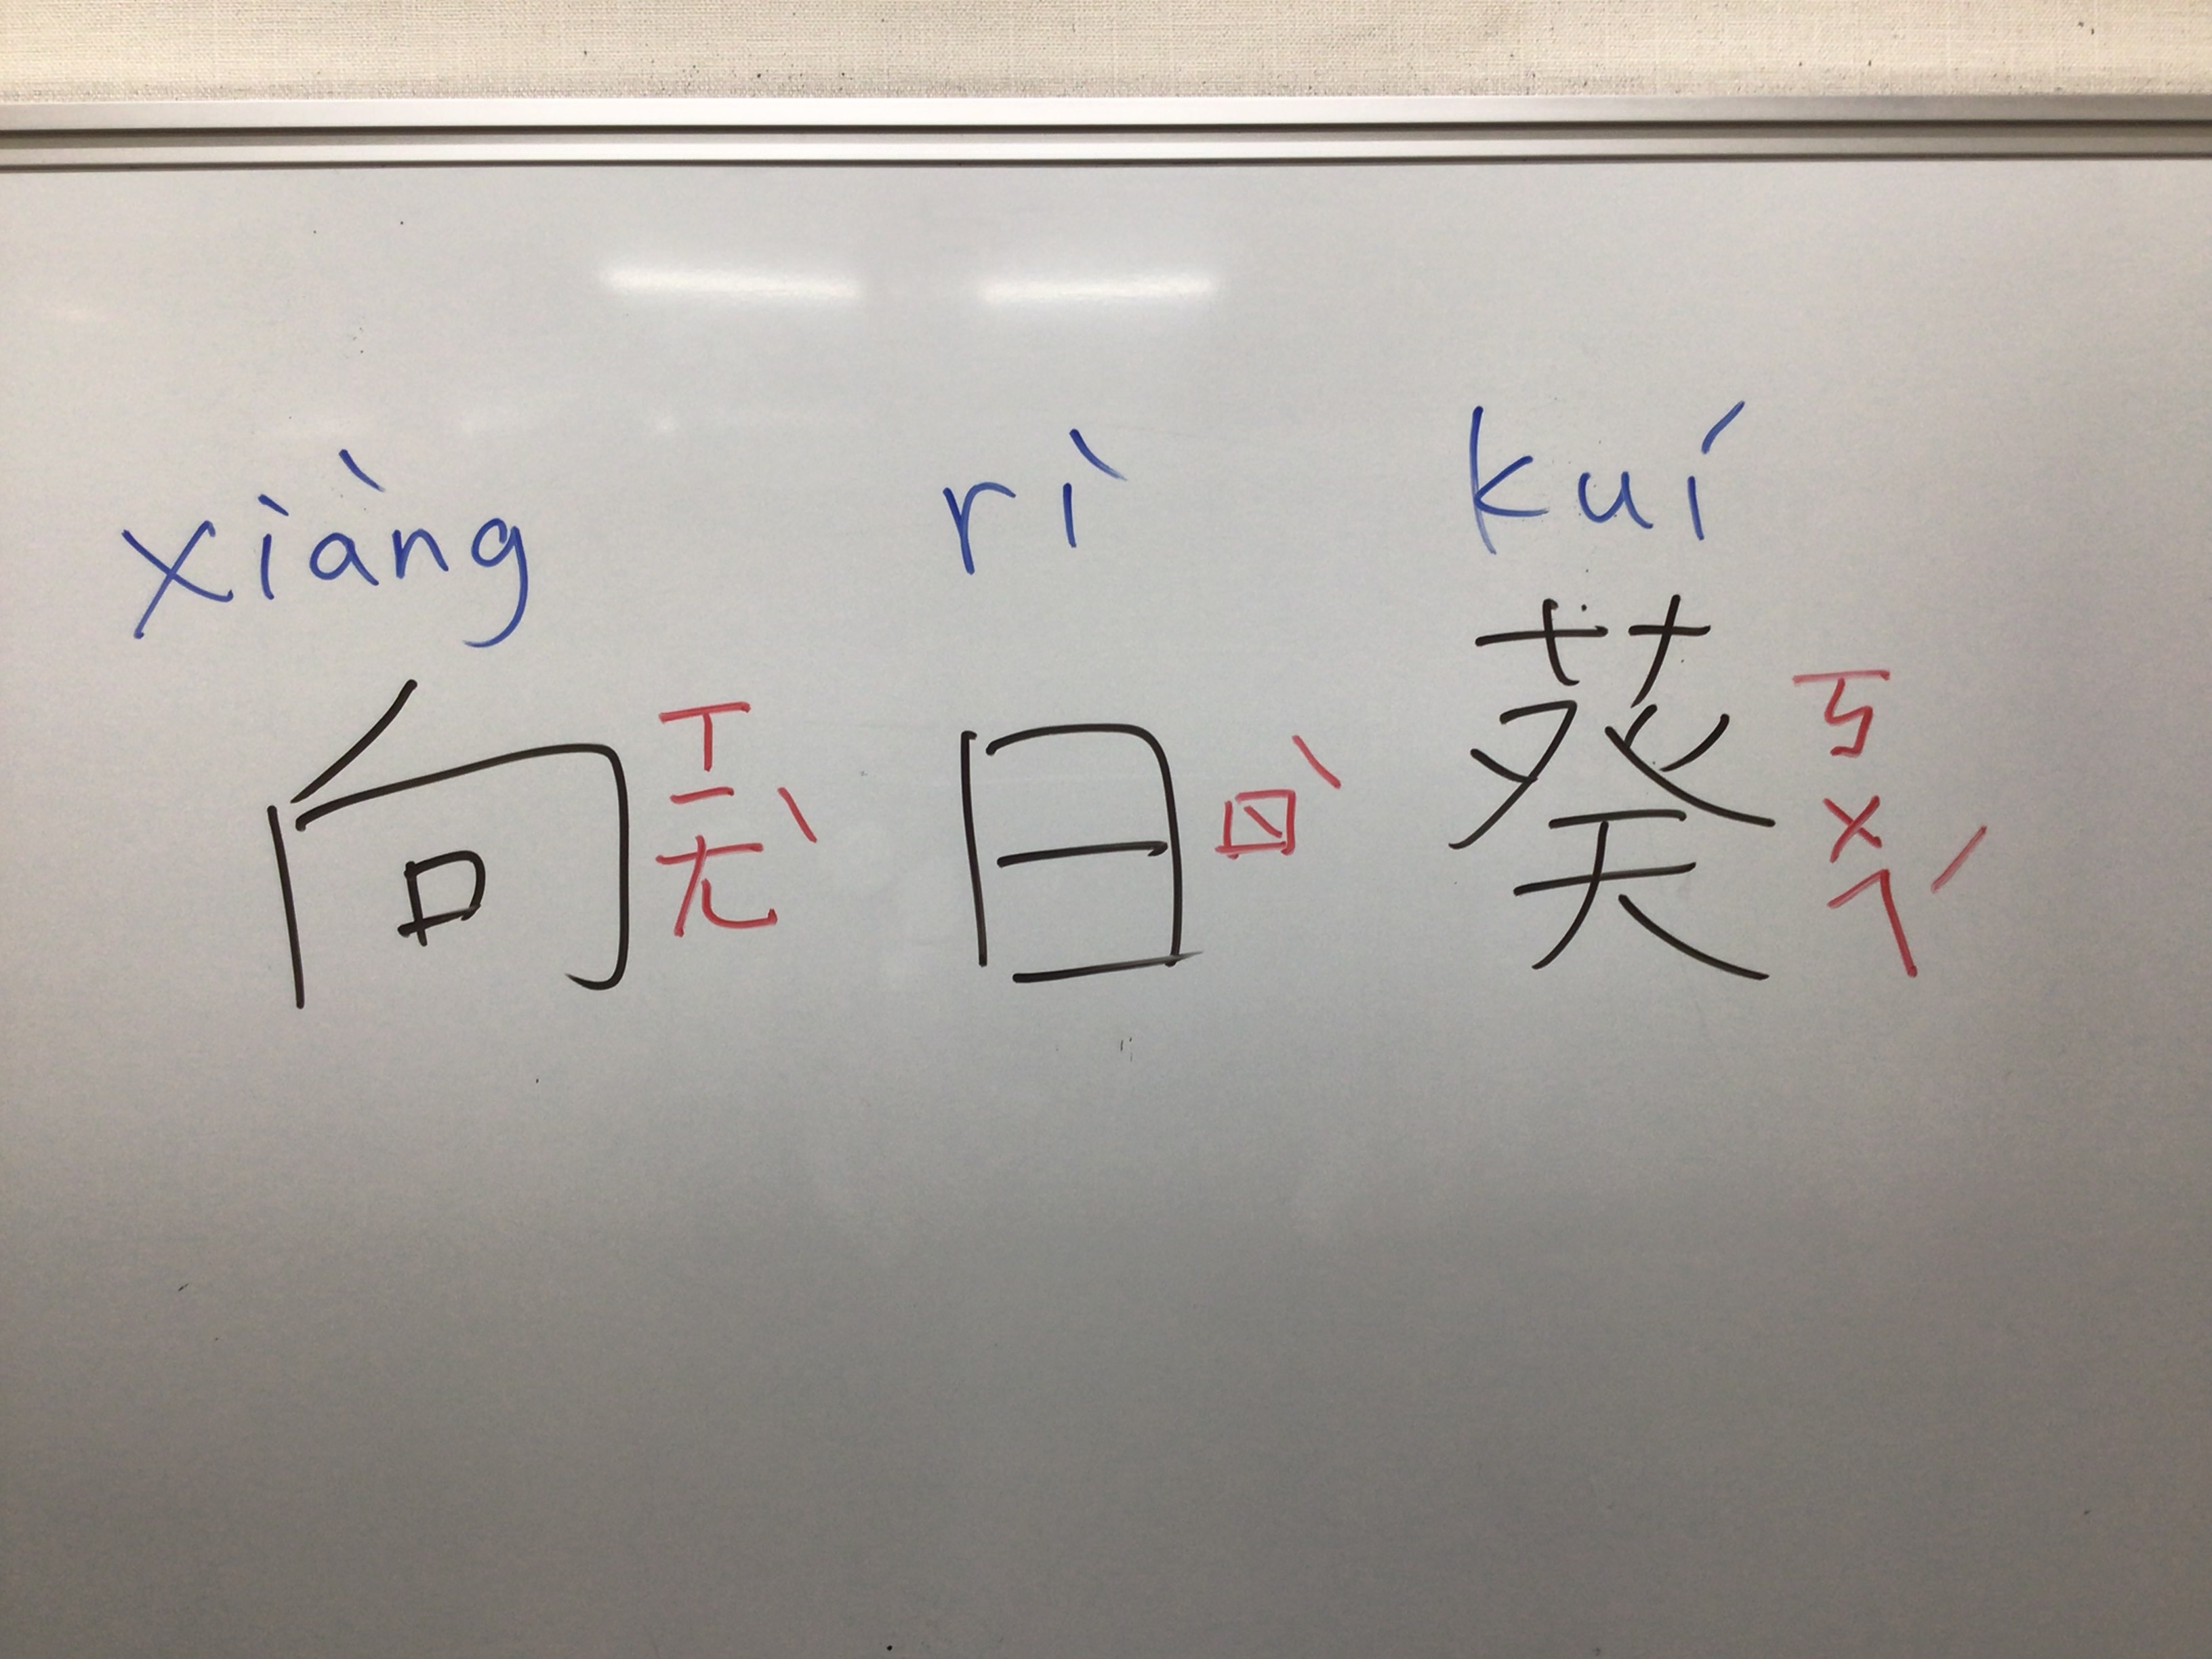 xiàng rì kuí
向 ㄒㄧㄤˋ 日 ㄖˋ 葵 ㄎㄨㄟˊ